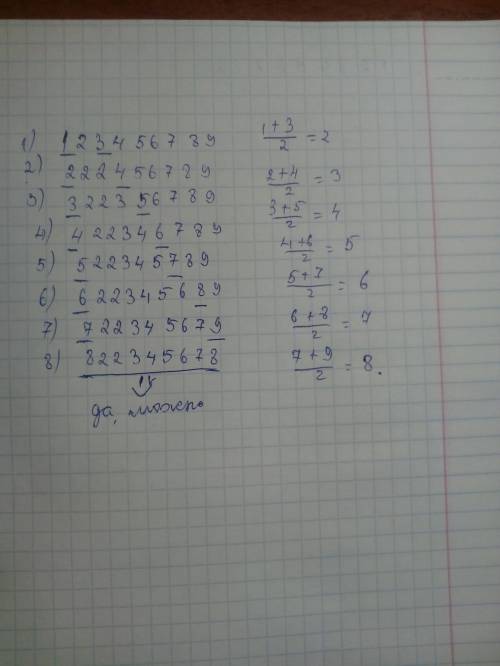 1) 1 2 3 4 5 6 7 8 9 (1+3)/2 = 2
2) 2 2 2 4 5 6 7 8 9 (2+4)/2 = 3
3) 3 2 2 3 5 6 7 8 9 (3+5)/2 = 4
4) 4 2 2 3 4 6 7 8 9 (4+6)/2 = 5
5) 5 2 2 3 4 5 7 8 9 (5+7)/2 = 6
6) 6 2 2 3 4 5 6 8 9 (6+8)/2 = 7
7) 7 2 2 3 4 5 6 7 9 (7+9)/2 = 8.
8) 8 2 2 3 4 5 6 7 8
да, можно